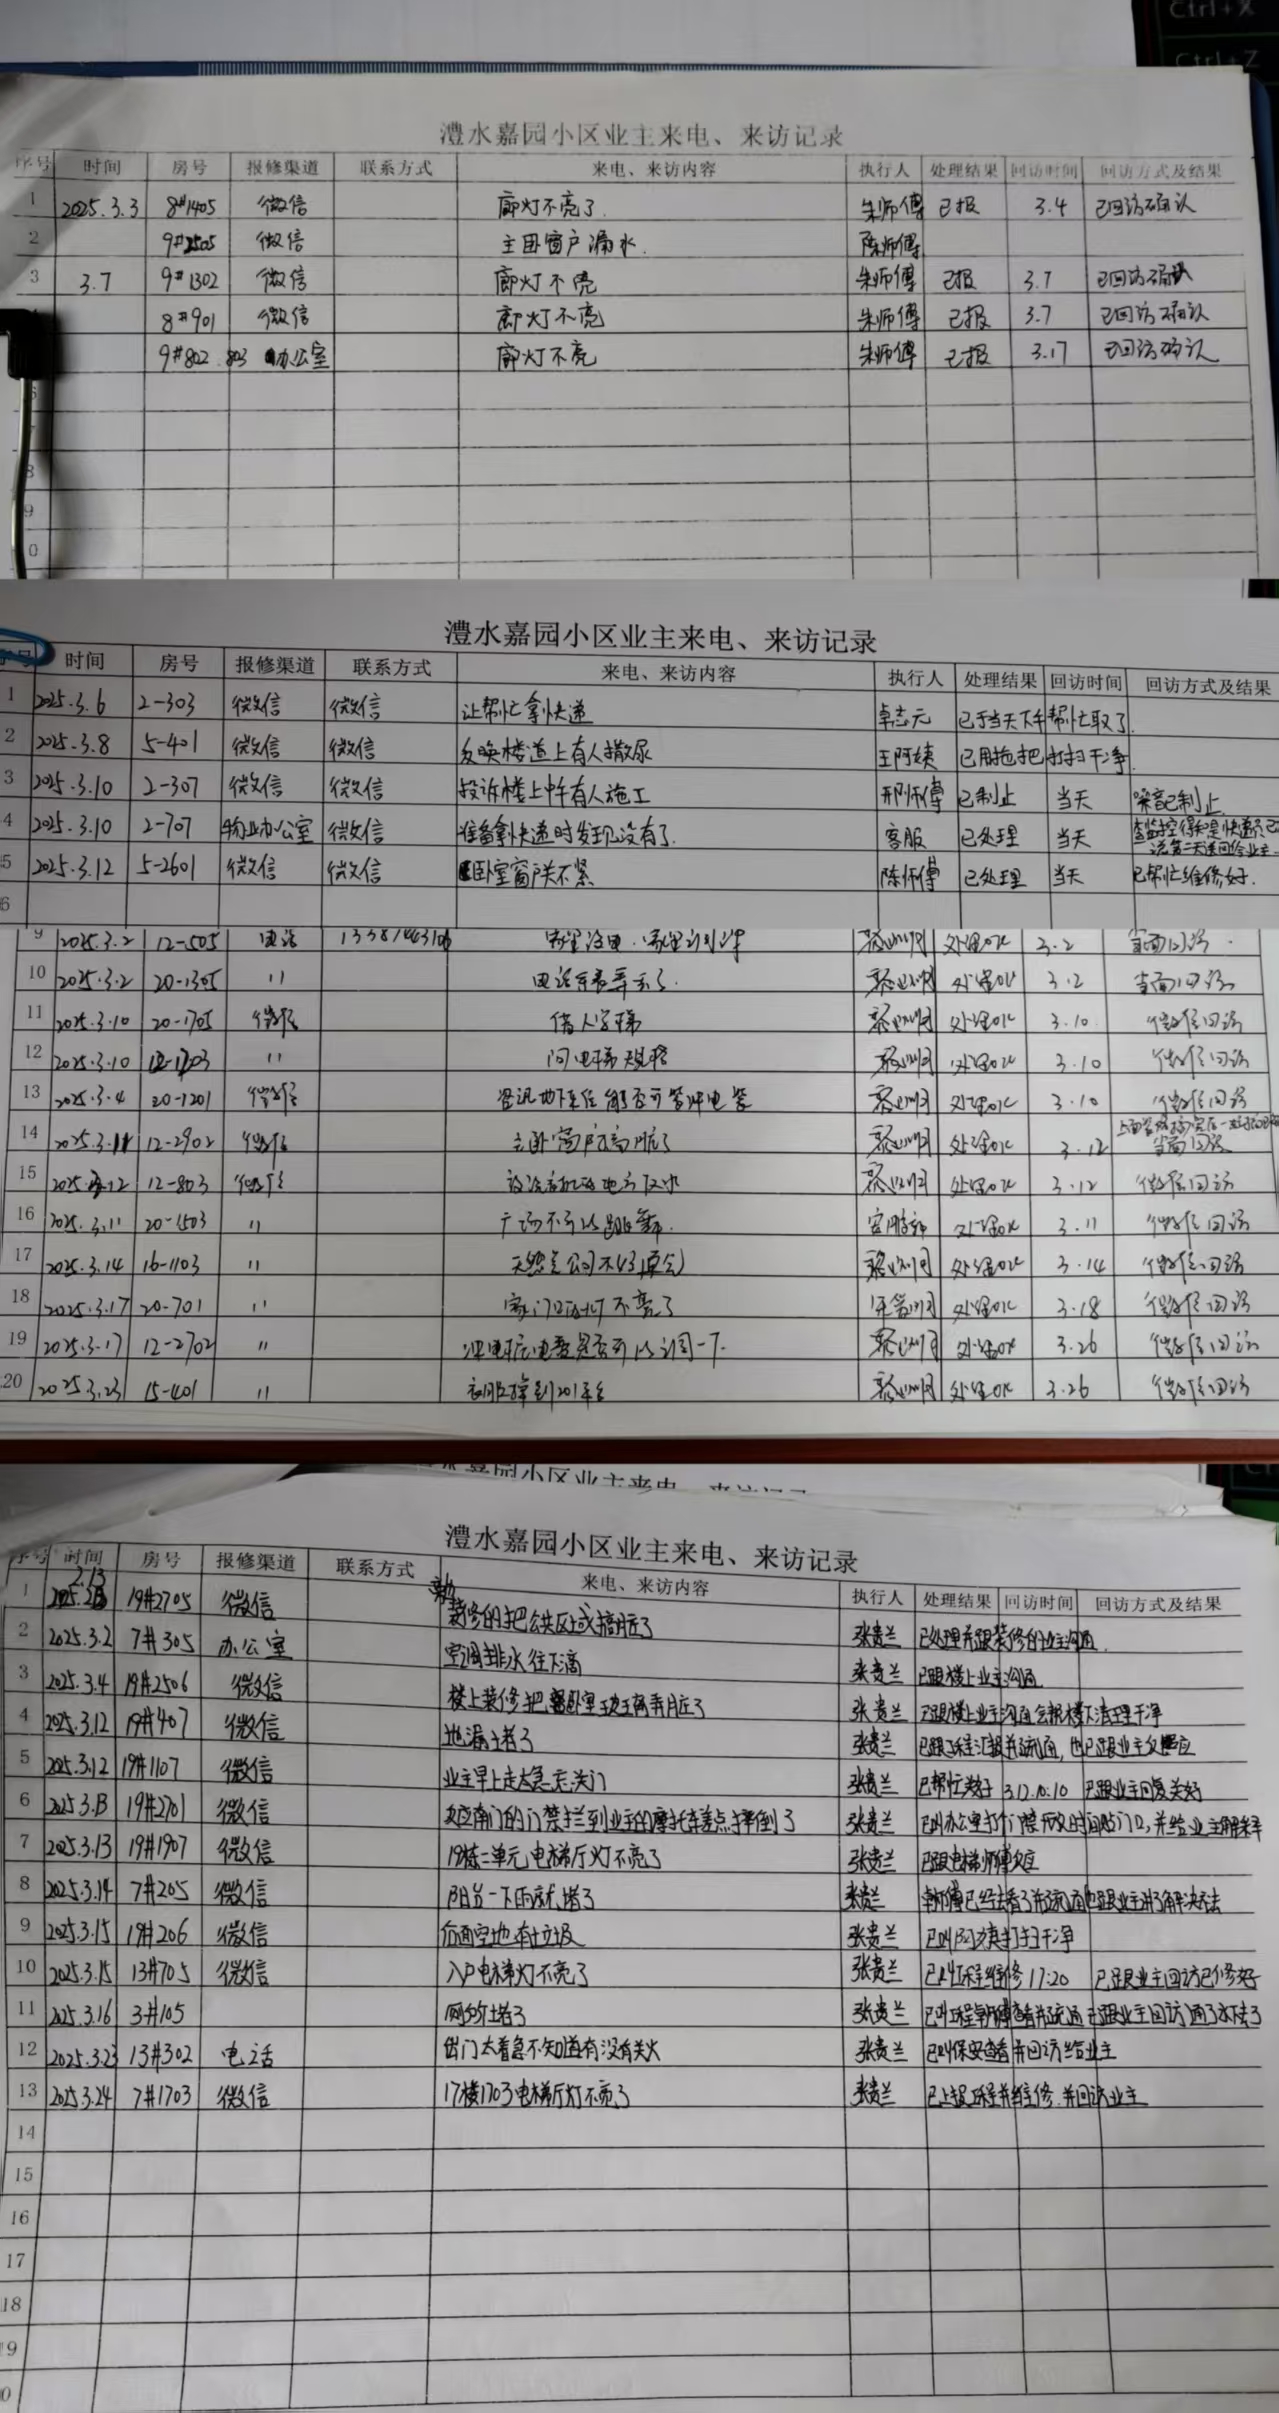 Ctrl+X
Ctrl+Z
澧水嘉园小区业主来电、来访记录
序号 时间 房号 报修渠道 联系方式 来电、来访内容 执行人 处理结果 回访时间 回访方式及结果
1 2025.3.3 8#1405 微信 廊灯不亮了. 朱师傅 已报 3.4 已回访确认
2 9#2505 微信 主卧窗户漏水. 陈师傅
3 3.7 9#1302 微信 廊灯不亮 朱师傅 已报 3.7 已回访确认
8#901 微信 廊灯不亮 朱师傅 已报 3.7 已回访确认
9#802.803 办公室 廊灯不亮 朱师傅 已报 3.17 已回访确认
8
9
0
澧水嘉园小区业主来电、来访记录
序号 时间 房号 报修渠道 联系方式 来电、来访内容 执行人 处理结果 回访时间 回访方式及结果
1 2025.3.6 2-303 微信 微信 让帮忙拿快递 卓志元 已于当天下午帮忙取了.
2 2025.3.8 5-401 微信 微信 反映楼道上有人撒尿 王阿姨 已用拖把打扫干净.
3 2025.3.10 2-307 微信 微信 投诉楼上中午有人施工 邢师傅 已制止 当天 噪音已制止.
4 2025.3.10 2-707 物业办公室 微信 准备拿快递时发现没有了. 客服 已处理 当天 查监控得知是快递员已
说第二天送回给业主.
5 2025.3.12 5-2601 微信 微信 卧室窗户关不紧 陈师傅 已处理 当天 已帮忙维修好.
6
9 2025.3.2 12-505 电话 家里没电. 处理OK 3.2 当面回访.
10 2025.3.2 20-1305 〃 处理OK 3.2 当面回访.
11 2025.3.10 20-1705 微信 借人字梯 处理OK 3.10. 微信回访
12 2025.3.10 12-1703 〃 问电梯规格 处理OK 3.10 微信回访
13 2025.3.4 20-1201 微信 处理OK 3.10 微信回访
14 2025.3.11 12-2902 微信 处理OK 3.12 当面回访
15 2025.3.12 12-803 微信 处理OK 3.12 微信回访
16 2025.3.11 20-1503 〃 广场不可以跳舞. 处理OK 3.11 微信回访
17 2025.3.14 16-1103 〃 天然气公司不 处理OK 3.14 微信回访
18 2025.3.17 20-701 〃 家门口的灯不亮了 处理OK 3.18 微信回访
19 2025.3.17 12-2702 〃 是否可以调一下. 处理OK 3.26 微信回访
20 2025.3.23 15-401 〃 衣服掉到201平台 处理OK 3.26 微信回访
澧水嘉园小区业主来电、来访记录
序号 时间 房号 报修渠道 联系方式 来电、来访内容 执行人 处理结果 回访时间 回访方式及结果
1 2025.2.13 19#2705 微信 装修的把公共区域搞脏了 张贵兰 已处理并跟装修的业主沟通.
2 2025.3.2 7#305 办公室 空调排水往下滴 张贵兰 已跟楼上业主沟通
3 2025.3.4 19#2506 微信 楼上装修把卧室玻璃弄脏了 张贵兰 已跟楼上业主沟通会帮楼下清理干净
4 2025.3.12 19#407 微信 地漏堵了 张贵兰 已跟工程汇报并疏通，也已跟业主反应
5 2025.3.12 19#1107 微信 业主早上走太急忘关门 张贵兰 已帮忙关好 3.12.10:10 已跟业主回复关好
6 2025.3.13 19#2701 微信 反应南门的门禁拦到业主的摩托车差点摔倒了 张贵兰 已叫办公室打门禁开放时间贴门口,并给业主解释
7 2025.3.13 19#1907 微信 19栋二单元电梯厅灯不亮了 张贵兰 已跟电梯师傅反应
8 2025.3.14 7#205 微信 阳台一下雨就堵了 张贵兰 师傅已经去看了并疏通也跟业主讲了解决办法
9 2025.3.15 19#206 微信 后面空地有垃圾 张贵兰 已叫阿姨打扫干净
10 2025.3.15 13#705 微信 入户电梯灯不亮了 张贵兰 已叫工程维修 17:20 已跟业主回访已修好
11 2025.3.16 3#105 厕所堵了 张贵兰 已叫工程师傅查看并疏通 已跟业主回访通了水下去了
12 2025.3.23 13#302 电话 出门太着急不知道有没有关火 张贵兰 已叫保安查看并回访给业主
13 2025.3.24 7#1703 微信 17楼1703电梯厅灯不亮了 张贵兰 已上报工程并维修.并回访业主
14
15
16
17
18
19
0